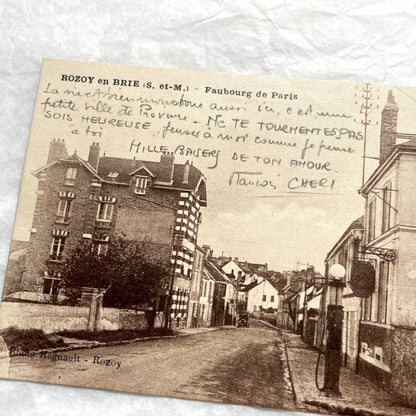 ROZOY en BRIE (S. et-M.) - Faubourg de Paris
La vie est bien monotone aussi ici, c'est une
petite ville de Province - NE TE TOURMENTES PAS
SOIS HEUREUSE, penses à moi comme je pense
à toi
MILLE BAISERS DE TON AMOUR
CHERI
Photo Regnault - Rozoy